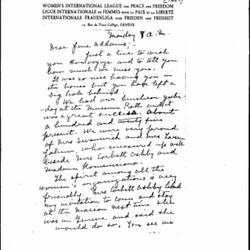 WOMEN'S INTERNATIONAL LEAGUE FOR PEACE AND FREEDOM
LIGUE INTERNATIONALE de FEMMES pour la PAIX et la LIBERTÉ
INTERNATIONALE FRAUENLIGA FÜR FRIEDEN UND FREIHEIT
Rue du Vieux Collège, GENÈVE
Monday 8 a.m.
Dear Jane Addams:-
Just a line to wish
you bon voyage and to tell you
how much we miss you.
It was so nice having you in
the house but you have left a
big hole behind.
We had our luncheon yester-
day at the Museum Path and it
was a great success. About
a hundred and twenty five
present. We were very proud
of Mrs Swanwick and
who succeeded up well
beside Mrs Corbett Ashby and
Madam
The spirit among all the
women's organizations is very
friendly. Mrs Corbett Ashby and
my invitation to come and stay
at the Maison next time she
was in Geneva and said she
would do so. You see we